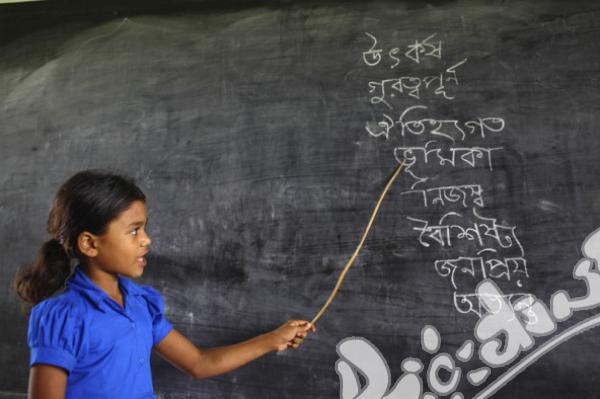 উৎকর্ষ
গুরত্বপূর্ন
ঐতিহ্যগত
ভূমিকা
নিজস্ব
বৈশিষ্ট্য
জনপ্রিয়